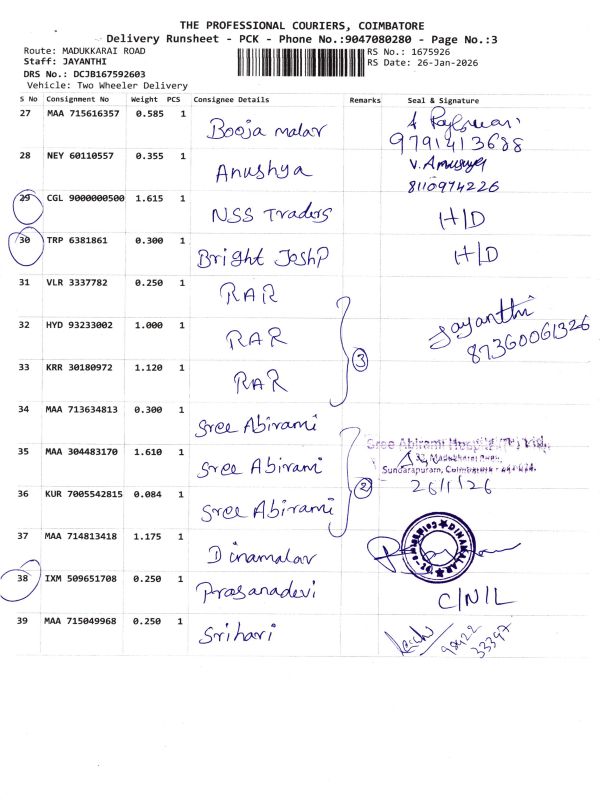 THE PROFESSIONAL COURIERS, COIMBATORE
Delivery Runsheet - PCK - Phone No.:9047080280 - Page No.:3
Route: MADUKKARAI ROAD
RS No.: 1675926
Staff: JAYANTHI
RS Date: 26-Jan-2026
DRS No.: DCJB167592603
Vehicle: Two Wheeler Delivery
S No Consignment No Weight PCS Consignee Details Remarks Seal & Signature
27 MAA 715616357 0.585 1 Booja malar
9791413688
28 NEY 60110557 0.355 1 Anushya V. Anushya
8110974226
29 CGL 9000000500 1.615 1 NSS Traders H/D
30 TRP 6381861 0.300 1 Bright JoshP H/D
31 VLR 3337782 0.250 1 RAR
32 HYD 93233002 1.000 1 RAR Jayanthi
87360061326
33 KRR 30180972 1.120 1 RAR
3
34 MAA 713634813 0.300 1 Sree Abirami
Sree Abirami
35 MAA 304483170 1.610 1 Sree Abirami
Sundarapuram, Coimbatore
36 KUR 7005542815 0.084 1 Sree Abirami 26/1/26
2
37 MAA 714813418 1.175 1 Dinamalar DINAMALAR
38 IXM 509651708 0.250 1 Prasanadevi C/N/L
39 MAA 715049968 0.250 1 Srihari
98422
33397